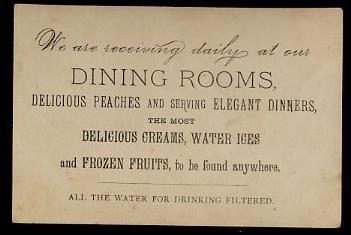 We are receiving daily at our
DINING ROOMS,
DELICIOUS PEACHES AND SERVING ELEGANT DINNERS,
THE MOST
DELICIOUS CREAMS, WATER ICES
and FROZEN FRUITS, to be found anywhere.
ALL THE WATER FOR DRINKING FILTERED.